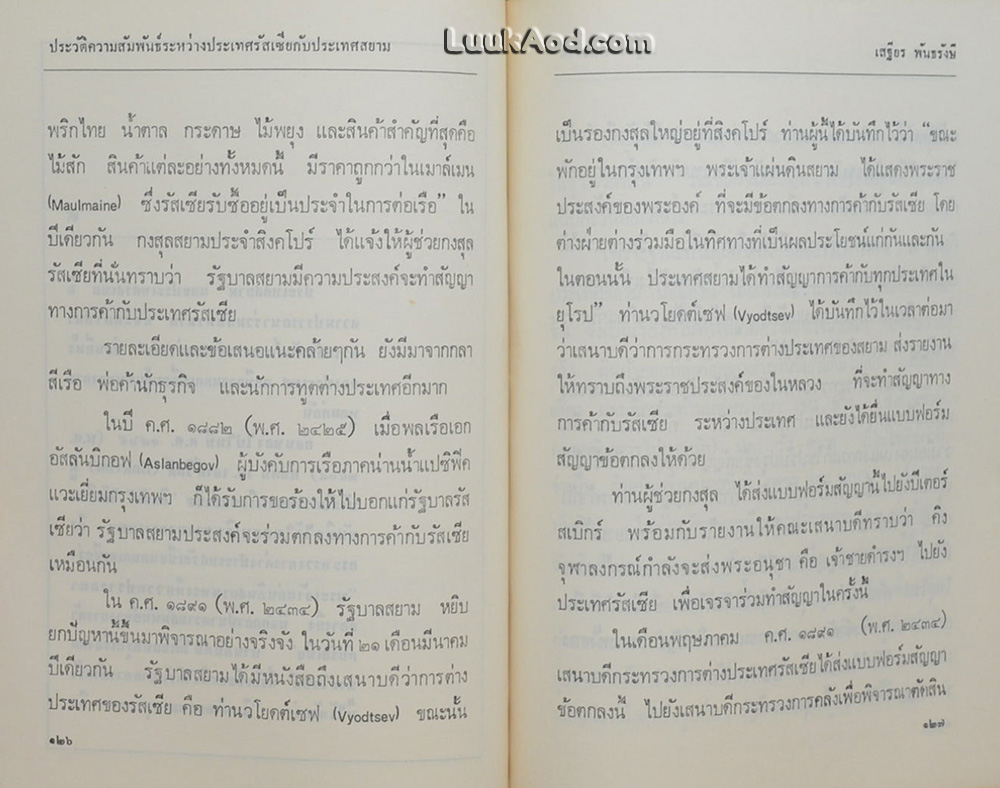 LuukAod.com
ประวัติความสัมพันธ์ระหว่างประเทศรัสเซียกับประเทศสยาม
พริกไทย น้ำตาล กระดาษ ไม้พยุง และสินค้าสำคัญที่สุดคือ
ไม้สัก สินค้าแต่ละอย่างทั้งหมดนี้ มีราคาถูกกว่าในเมาล์เมน
(Maulmaine) ซึ่งรัสเซียรับซื้ออยู่เป็นประจำในการต่อเรือ” ใน
ปีเดียวกัน กงสุลสยามประจำสิงคโปร์ ได้แจ้งให้ผู้ช่วยกงสุล
รัสเซียที่นั่นทราบว่า รัฐบาลสยามมีความประสงค์จะทำสัญญา
ทางการค้ากับประเทศรัสเซีย
รายละเอียดและข้อเสนอแนะคล้ายๆกัน ยังมีมาจากกลา
สีเรือ พ่อค้านักธุรกิจ และนักการทูตต่างประเทศอีกมาก
ในปี ค.ศ. ๑๘๘๒ (พ.ศ. ๒๔๒๕) เมื่อพลเรือเอก
อัสลันบิกอฟ (Aslanbegov) ผู้บังคับการเรือภาคน่านน้ำแปซิฟิค
แวะเยี่ยมกรุงเทพฯ ก็ได้รับการขอร้องให้ไปบอกแก่รัฐบาลรัส
เซียว่า รัฐบาลสยามประสงค์จะร่วมตกลงทางการค้ากับรัสเซีย
เหมือนกัน
ใน ค.ศ. ๑๘๙๑ (พ.ศ. ๒๔๓๔) รัฐบาลสยาม หยิบ
ยกปัญหานี้ขึ้นมาพิจารณาอย่างจริงจัง ในวันที่ ๒๑ เดือนมีนาคม
ปีเดียวกัน รัฐบาลสยามได้มีหนังสือถึงเสนาบดีว่าการต่าง
ประเทศของรัสเซีย คือ ท่านวโยดต์เซฟ (Vyodtsev) ขณะนั้น
๑๒๖
เสฐียร พันธรังษี
เป็นรองกงสุลใหญ่อยู่ที่สิงคโปร์ ท่านผู้นี้ได้บันทึกไว้ว่า “ขณะ
พักอยู่ในกรุงเทพฯ พระเจ้าแผ่นดินสยาม ได้แสดงพระราช
ประสงค์ของพระองค์ ที่จะมีข้อตกลงทางการค้ากับรัสเซีย โดย
ต่างฝ่ายต่างร่วมมือในทิศทางที่เป็นผลประโยชน์แก่กันและกัน
ในตอนนั้น ประเทศสยามได้ทำสัญญาการค้ากับทุกประเทศใน
ยุโรป” ท่านวโยดต์เซฟ (Vyodtsev) ได้บันทึกไว้ในเวลาต่อมา
ว่าเสนาบดีว่าการกระทรวงการต่างประเทศของสยาม ส่งรายงาน
ให้ทราบถึงพระราชประสงค์ของในหลวง ที่จะทำสัญญาทาง
การค้ากับรัสเซีย ระหว่างประเทศ และยังได้ยื่นแบบฟอร์ม
สัญญาข้อตกลงให้ด้วย
ท่านผู้ช่วยกงสุล ได้ส่งแบบฟอร์มสัญญานี้ไปยังปีเตอร์
สเบิกร์ พร้อมกับรายงานให้คณะเสนาบดีทราบว่า คิง
จุฬาลงกรณ์กำลังจะส่งพระอนุชา คือ เจ้าชายดำรงฯ ไปยัง
ประเทศรัสเซีย เพื่อเจรจาร่วมทำสัญญาในครั้งนี้
ในเดือนพฤษภาคม ค.ศ. ๑๘๙๑ (พ.ศ. ๒๔๓๔)
เสนาบดีกระทรวงการต่างประเทศรัสเซียได้ส่งแบบฟอร์มสัญญา
ข้อตกลงนี้ ไปยังเสนาบดีกระทรวงการคลังเพื่อพิจารณาตัดสิน
๑๒๗